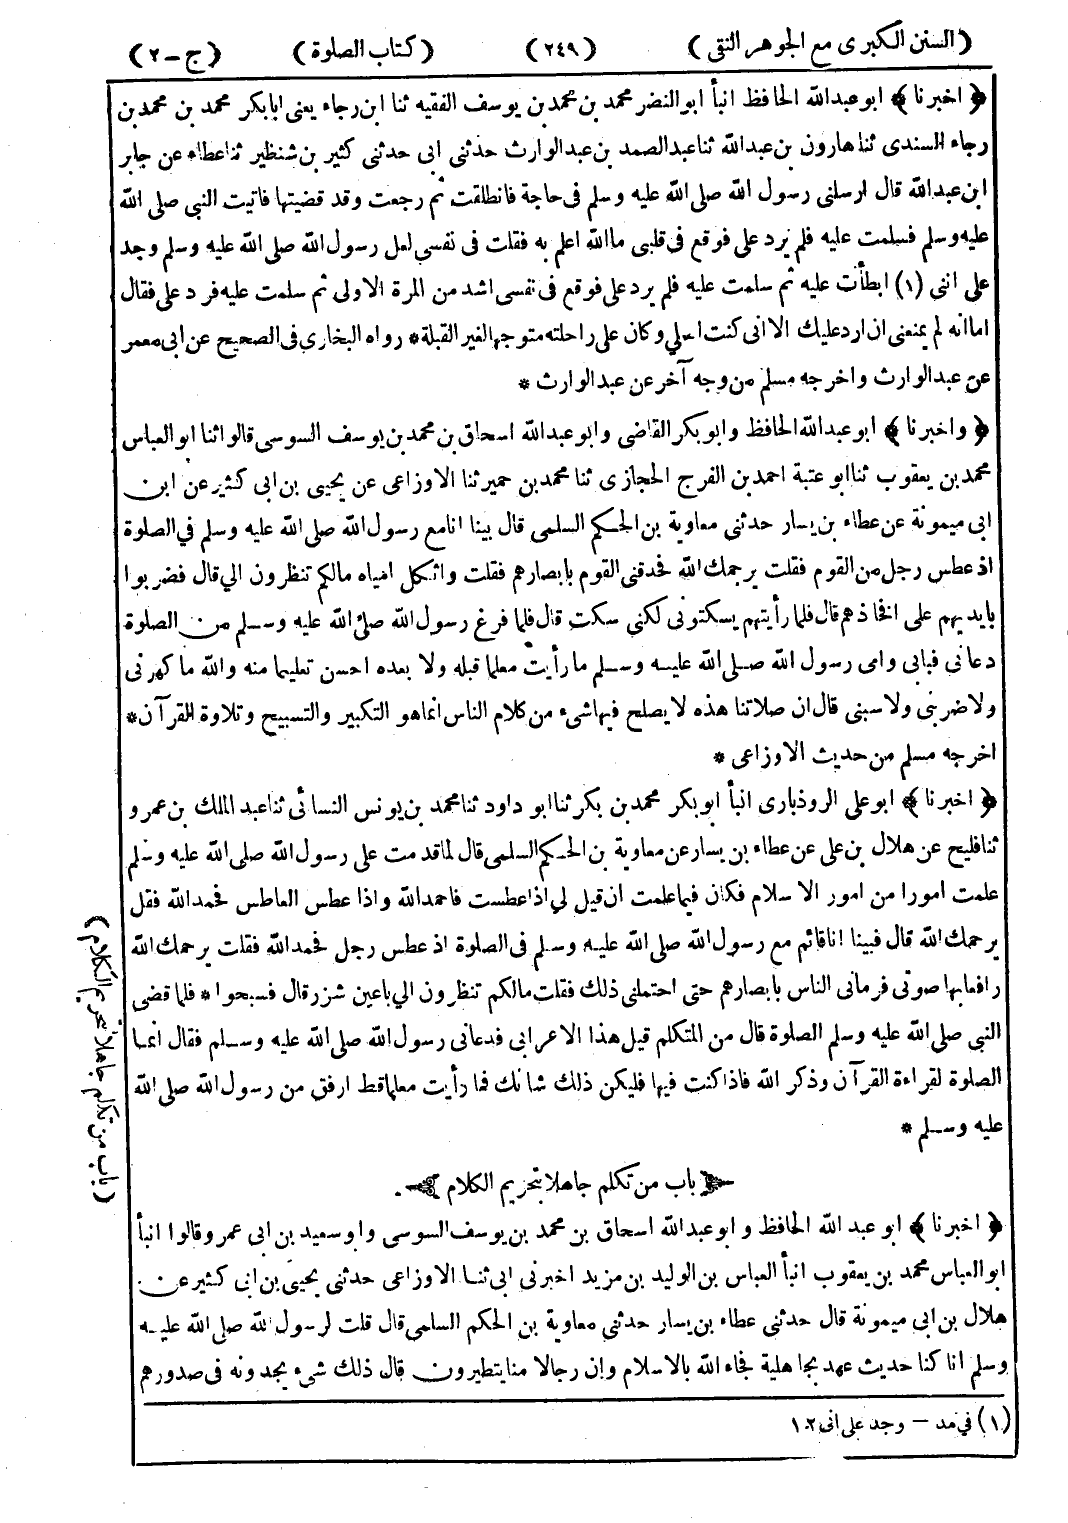 (السنن الكبرى مع الجوهر النقى) (٢٤٩) (كتاب الصلوة) (ج - ٢)
﴿ اخبرنا ﴾ ابو عبد الله الحافظ انبأ ابو النضر محمد بن محمد بن يوسف الفقيه ثنا ابن رجاء يعنى ابابكر محمد بن محمد بن
رجاء السندى ثنا هارون بن عبد الله ثنا عبد الصمد بن عبد الوارث حدثنى ابى حدثنى كثير بن شنظير ثنا عطاء عن جابر
ابن عبد الله قال ارسلنى رسول الله صلى الله عليه وسلم فى حاجة فانطلقت ثم رجعت وقد قضيتها فاتيت النبى صلى الله
عليه وسلم فسلمت عليه فلم يرد على فوقع فى قلبى ما الله اعلم به فقلت فى نفسى لعل رسول الله صلى الله عليه وسلم وجد
على اننى (١) ابطأت عليه ثم سلمت عليه فلم يرد على فوقع فى نفسى اشد من المرة الاولى ثم سلمت عليه فرد على فقال
اما انه لم يمنعنى ان ارد عليك الا انى كنت اصلى وكان على راحلته متوجها لغير القبلة * رواه البخارى فى الصحيح عن ابى معمر
عن عبد الوارث واخرجه مسلم من وجه آخر عن عبد الوارث *
﴿ واخبرنا ﴾ ابو عبد الله الحافظ وابو بكر القاضى وابو عبد الله اسحاق بن محمد بن يوسف السوسى قالوا ثنا ابو العباس
محمد بن يعقوب ثنا ابو عتبة احمد بن الفرج الحجازى ثنا محمد بن حمير ثنا الاوزاعى عن يحيى بن ابى كثير عن ابن
ابى ميمونة عن عطاء بن يسار حدثنى معاوية بن الحكم السلمى قال بينا انا مع رسول الله صلى الله عليه وسلم في الصلوة
اذ عطس رجل من القوم فقلت يرحمك الله فحدقنى القوم بابصارهم فقلت واثكل امياه مالكم تنظرون الي قال فضربوا
بايديهم على افخاذهم قال فلما رأيتهم يسكتونى لكنى سكت قال فلما فرغ رسول الله صلى الله عليه وسلم من الصلوة
دعانى فبابى وامى رسول الله صلى الله عليه وسلم ما رأيت معلما قبله ولا بعده احسن تعليما منه والله ما كهرنى
ولا ضربنى ولا سبنى قال ان صلاتنا هذه لا يصلح فيها شىء من كلام الناس انما هو التكبير والتسبيح وتلاوة القرآن *
اخرجه مسلم من حديث الاوزاعى *
﴿ اخبرنا ﴾ ابو على الروذبارى انبأ ابو بكر محمد بن بكر ثنا ابو داود ثنا محمد بن يونس النسائى ثنا عبد الملك بن عمرو
ثنا فليح عن هلال بن على عن عطاء بن يسار عن معاوية بن الحكم السلمى قال لما قدمت على رسول الله صلى الله عليه وسلم
علمت امورا من امور الاسلام فكان فيما علمت ان قيل لي اذا عطست فاحمد الله واذا عطس العاطس فحمد الله فقل
يرحمك الله قال فبينا انا قائم مع رسول الله صلى الله عليه وسلم فى الصلوة اذ عطس رجل فحمد الله فقلت يرحمك الله
رافعا بها صوتى فرمانى الناس بابصارهم حتى احتملنى ذلك فقلت مالكم تنظرون الي باعين شزر قال فسبحوا * فلما قضى
النبى صلى الله عليه وسلم الصلوة قال من المتكلم قيل هذا الاعرابى فدعانى رسول الله صلى الله عليه وسلم فقال انما
الصلوة لقراءة القرآن وذكر الله فاذا كنت فيها فليكن ذلك شانك فما رأيت معلما قط ارفق من رسول الله صلى الله
عليه وسلم *
باب من تكلم جاهلا بتحريم الكلام
﴿ اخبرنا ﴾ ابو عبد الله الحافظ و ابو عبد الله اسحاق بن محمد بن يوسف السوسى وابو سعيد بن ابى عمرو قالوا انبأ
ابو العباس محمد بن يعقوب انبأ العباس بن الوليد بن مزيد اخبرنى ابى ثنا الاوزاعى حدثنى يحيى بن ابى كثير عن
هلال بن ابى ميمونة قال حدثنى عطاء بن يسار حدثنى معاوية بن الحكم السلمى قال قلت لرسول الله صلى الله عليه
وسلم انا كنا حديث عهد بجاهلية فجاء الله بالاسلام وان رجالا منا يتطيرون قال ذلك شىء يجدونه فى صدورهم
(١) في مد – وجد على انى ١٠٢
(باب من تكلم جاهلا بتحريم الكلام)